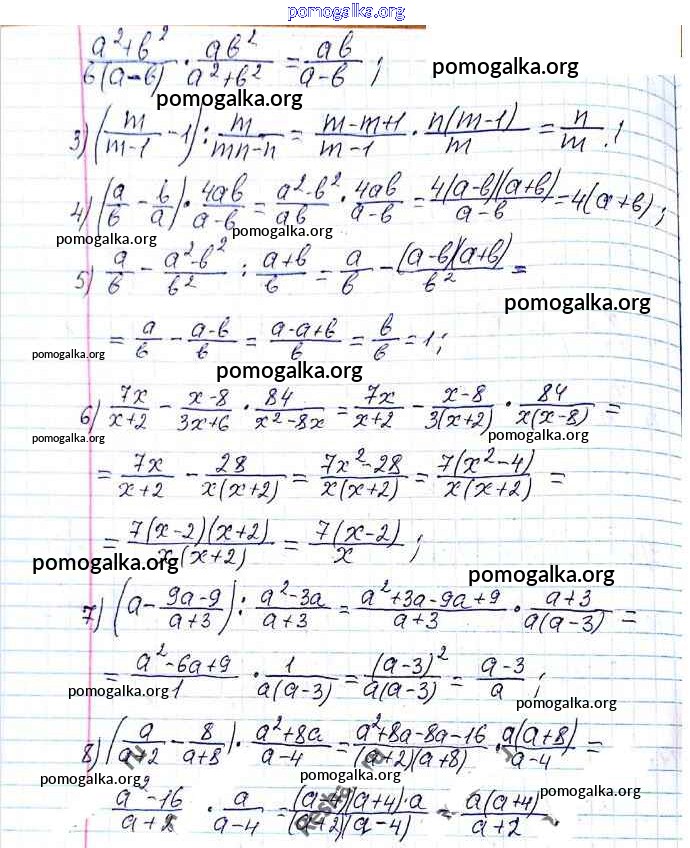 pomogalka.org
(a²+b²)/(b(a-b)) · ab²/(a²+b²) = ab/(a-b);
pomogalka.org
pomogalka.org
3) (m/(m-1) - 1) : m/(mn-n) = (m-m+1)/(m-1) · n(m-1)/m = n/m.!
4) (a/b - b/a) · 4ab/(a-b) = (a²-b²)/ab · 4ab/(a-b) = 4(a-b)(a+b)/(a-b) = 4(a+b);
pomogalka.org pomogalka.org
5) a/b - (a²-b²)/b² : (a+b)/b = a/b - (a-b)(a+b)/b² =
pomogalka.org
= a/b - (a-b)/b = (a-a+b)/b = b/b = 1;
pomogalka.org pomogalka.org
6) 7x/(x+2) - (x-8)/(3x+6) · 84/(x²-8x) = 7x/(x+2) - (x-8)/(3(x+2)) · 84/(x(x-8)) =
pomogalka.org pomogalka.org
= 7x/(x+2) - 28/(x(x+2)) = (7x²-28)/(x(x+2)) = 7(x²-4)/(x(x+2)) =
= 7(x-2)(x+2)/(x(x+2)) = 7(x-2)/x;
pomogalka.org pomogalka.org
7) (a - (9a-9)/(a+3)) : (a²-3a)/(a+3) = (a²+3a-9a+9)/(a+3) · (a+3)/(a(a-3)) =
= (a²-6a+9)/1 · 1/(a(a-3)) = (a-3)²/(a(a-3)) = (a-3)/a;
pomogalka.org pomogalka.org
8) (a/(a+2) - 8/(a+8)) · (a²+8a)/(a-4) = (a²+8a-8a-16)/((a+2)(a+8)) · a(a+8)/(a-4) =
pomogalka.org pomogalka.org
(a²-16)/(a+2) · a/(a-4) = (a-4)(a+4)·a/((a+2)(a-4)) = a(a+4)/(a+2)
pomogalka.org